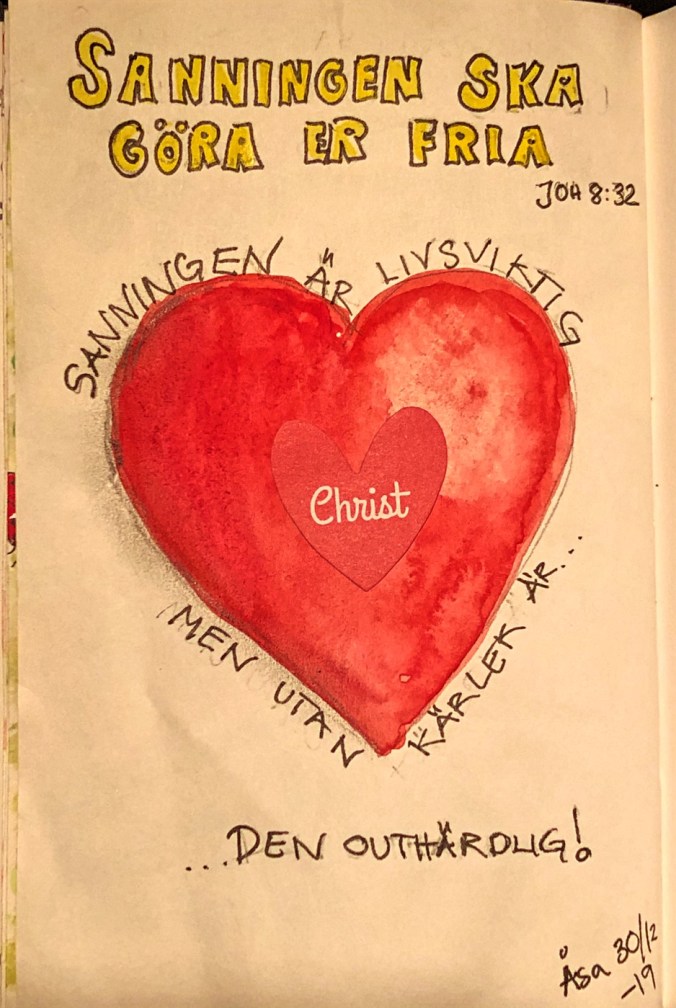 SANNINGEN SKA
GÖRA ER FRIA
JOH 8:32
SANNINGEN ÄR LIVSVIKTIG
Christ
MEN UTAN KÄRLEK ÄR...
...DEN OUTHÄRDLIG!
Åsa 30/12
-19